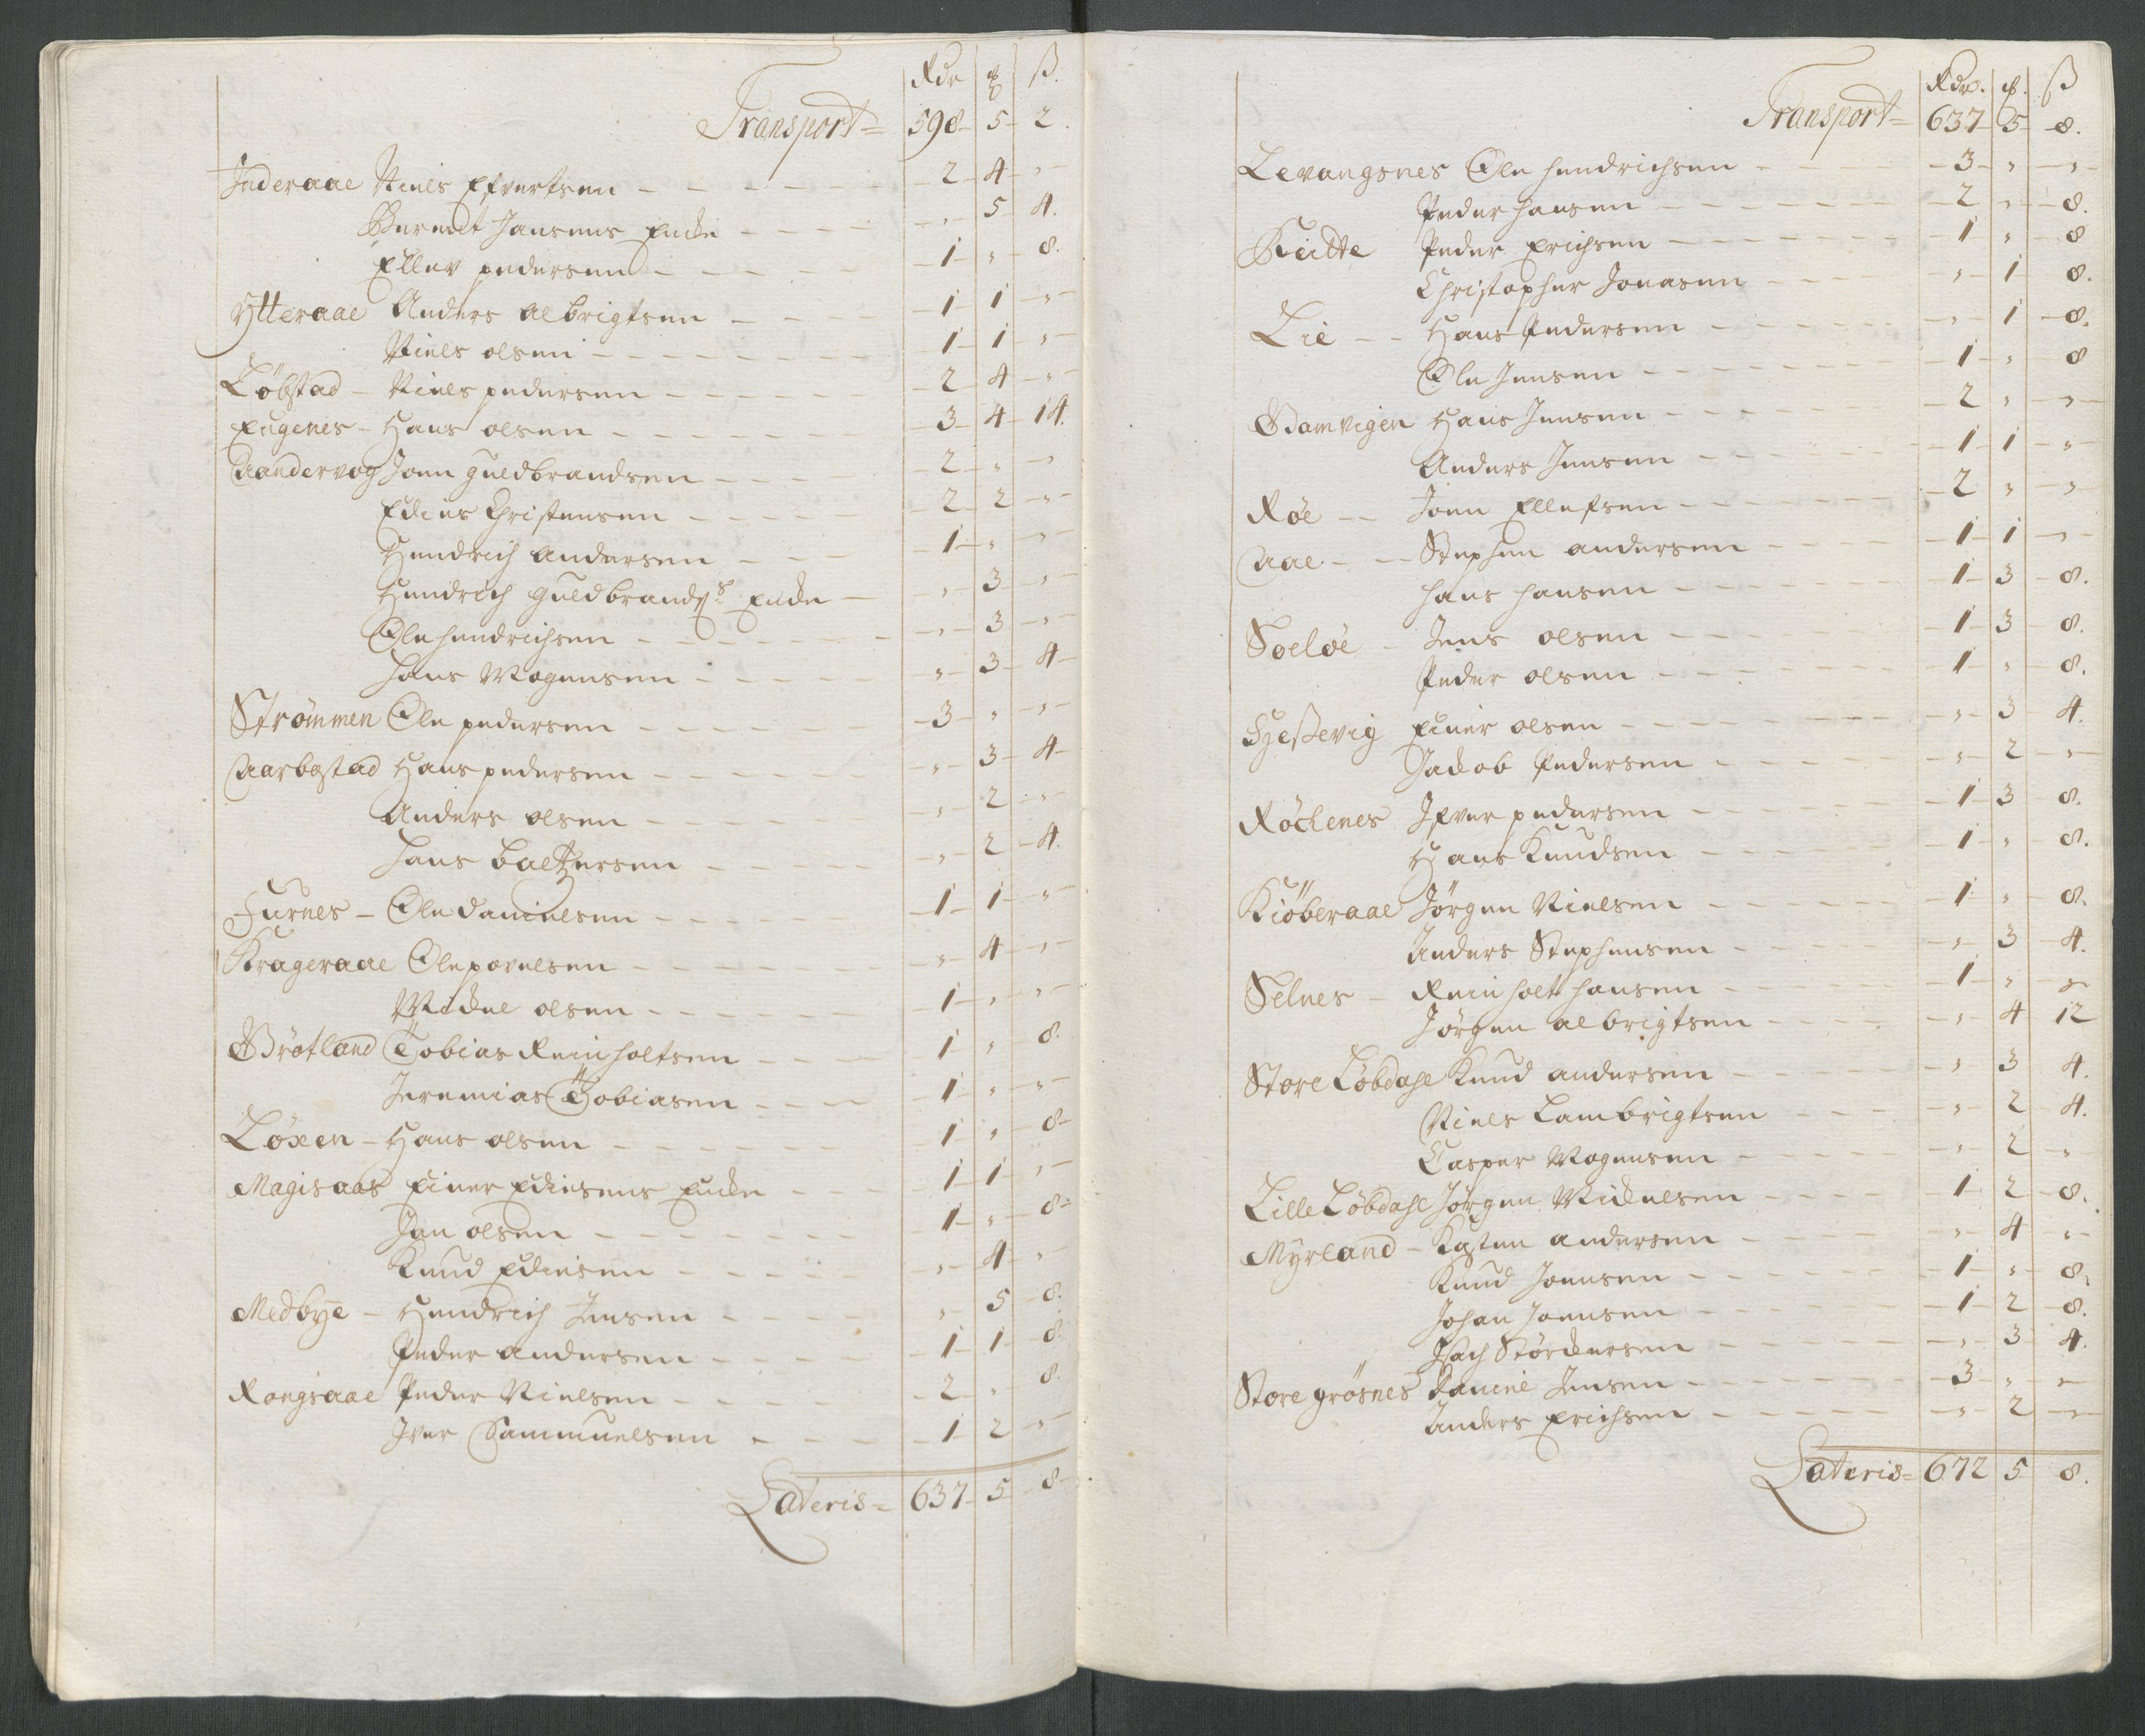 Rdr ꝸ ß.
Transport = 598 - 5 - 2.
Inderaae Niels Efvertsen - 2 - 4 - "
Berendt Jansens Encke - " - 5 - 4.
Ellev pedersen - 1 - " - 8.
Ytteraae Anders Albrigtsen - 1 - 1 - "
Niels olsen - 1 - 1 - "
Löbstad - Niels pedersen - 2 - 4 - "
Engenes - Hans olsen - 3 - 4 - 14.
Aandervog Joen guldbrandsen - 2 - " - "
Edies Christensen - 2 - 2 - "
Hendrich Andersen - 1 - " - "
Hendrich guldbrands: Encke - " - 3 - "
Ole hendrichsen - " - 3 - "
Hans Mogensen - " - 3 - 4
Strömmen Ole pedersen - 3 - " - "
Aarbostad Hans pedersen - " - 3 - 4
Anders olsen - " - 2 - "
Hans baltzersen - " - 2 - 4.
Furnes - Ole danielsen - 1 - 1 - "
Krageraae Ole povelsen - " - 4 - "
Mickel olsen - 1 - " - "
Brötland Tobias Reinholtsen - 1 - " - 8.
Jeremias Tobiasen - 1 - " - "
Löxen - Hans olsen - 1 - " - 8
Magisaas Einer Ediesens Encke - 1 - 1 - "
Jan olsen - 1 - " - 8
Knud Ediesen - " - 4 - "
Medbye - Hendrich Jensen - " - 5 - 8.
Peder andersen - 1 - 1 - 8.
Rongsaae Peder Nielsen - 2 - " - 8.
Iver Sammuelsen - 1 - 2 - "
Lateris = 637 - 5 - 8
Rdr. ꝸ. ß
Transport = 637 - 5 - 8.
Levangsnes Ole hendrichsen - 3 - " - "
Peder hansen - 2 - " - 8.
Kiette Peder Erichsen - 1 - " - 8
Christopher Jonasen - " - 1 - 8.
Lie - Hans Pedersen - " - 1 - 8.
Ole Jensen - 1 - " - 8
Bomvigen Hans Jensen - 2 - " - "
Anders Jensen - 1 - 1 - "
Röe - Joen Ellefsen - 2 - " - "
Aae - Stephen andersen - 1 - 1 - "
hans hansen - 1 - 3 - 8.
Soeløe - Jens olsen - 1 - 3 - 8.
Peder olsen - 1 - " - 8.
Hessevig Einer olsen - " - 3 - 4.
Jacob Pedersen - " - 2 - "
Röckenes Ifver pedersen - 1 - 3 - 8.
Hans Knudsen - 1 - " - 8.
Kiöberaae Jörgen Nielsen - 1 - " - 8.
Anders Stephensen - " - 3 - 4.
Selnes - Reinholt hansen - 1 - " - "
Jörgen albrigtsen - " - 4 - 12
Store Löbdahl Knud andersen - " - 3 - 4.
Niels Lambrigtsen - " - 2 - 4.
Casper Mogensen - " - 2 - "
Lille Löbdahl Jörgen Mickelsen - 1 - 2 - 8.
Myrland - Kasten andersen - " - 4 - "
Knud Joensen - 1 - " - 8.
Johan Joensen - 1 - 2 - 8.
Isach Störckersen - " - 3 - 4.
Store grösnes Daniel Jensen - 3 - " - "
Anders Erichsen - " - 2 - "
Lateris = 672 5 8.